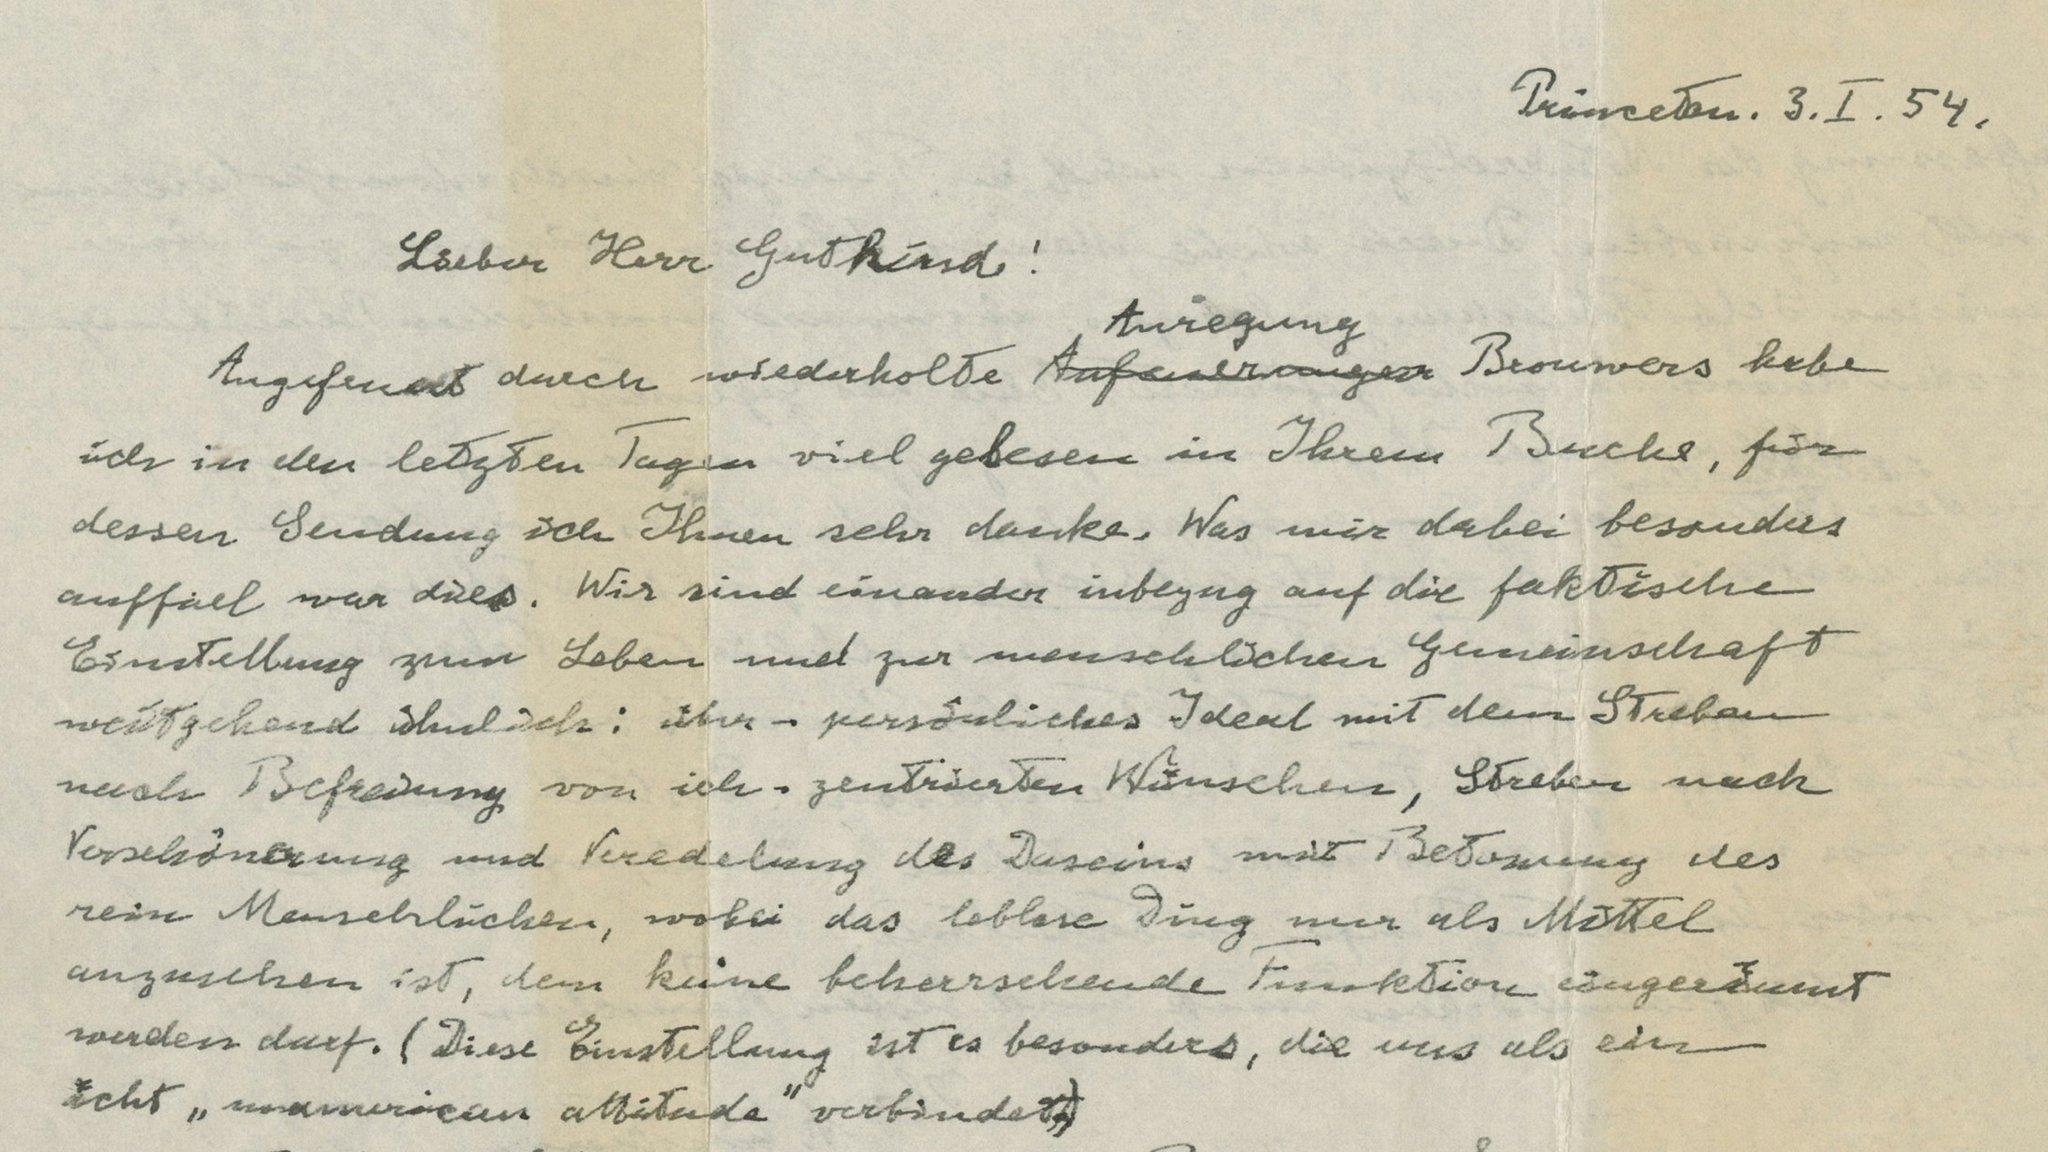 Princeton. 3. I. 54.
Lieber Herr Gutkind!
Anregung
Angefeuert durch wiederholte Aufeuerungen Brouwers habe
ich in den letzten Tagen viel gelesen in Ihrem Buche, für
dessen Sendung ich Ihnen sehr danke. Was mir dabei besonders
auffiel war dies. Wir sind einander inbezug auf die faktische
Einstellung zum Leben und zur menschlichen Gemeinschaft
weitgehend ähnlich: über-persönliches Ideal mit dem Streben
nach Befreiung von ich-zentrierten Wünschen, Streben nach
Verschönerung und Veredelung des Daseins mit Betonung des
rein Menschlichen, wobei das leblose Ding nur als Mittel
anzusehen ist, dem keine beherrschende Funktion eingeräumt
werden darf. (Diese Einstellung ist es besonders, die uns als ein
ächt „unamerican attitude" verbindet.)